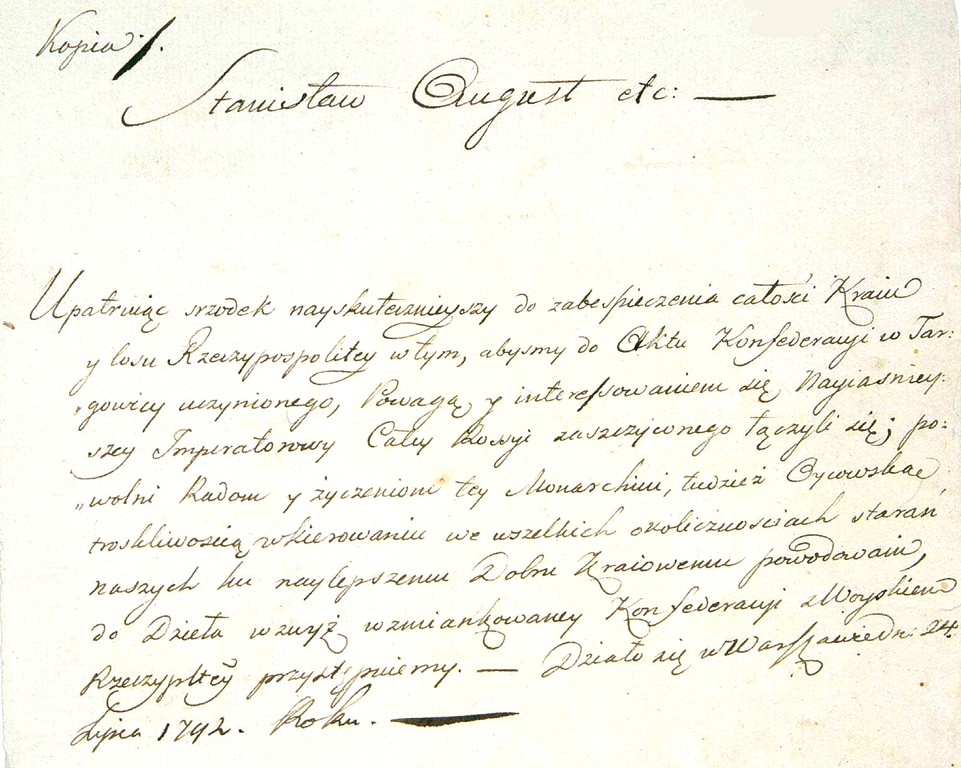 Kopia
Stanisław August etc: —
Upatruiąc srzodek nayskutecznieyszy do zabespieczenia całości Kraiu
y losu Rzeczypospolitey w tym, abysmy do Aktu Konfederacyi w Tar:
„gowicy uczynionego, Powagą y interessowaniem się Nayiasniey:
szey Imperatorowy Całey Rossyi zaszczyconego łączyli się; po:
„wolni Radom y życzeniom tey Monarchini, tudzież Oycowską
troskliwoscią w kierowaniu we wszelkich okolicznosciach starań
naszych ku naylepszemu Dobru Kraiowemu powodowani,
do Dzieła wzwyż wzmiankowaney Konfederacyi z Woyskiem
Rzeczypltey przystępuiemy. — Działo się w Warszawie dn: 24.
Lipca 1792. Roku. —